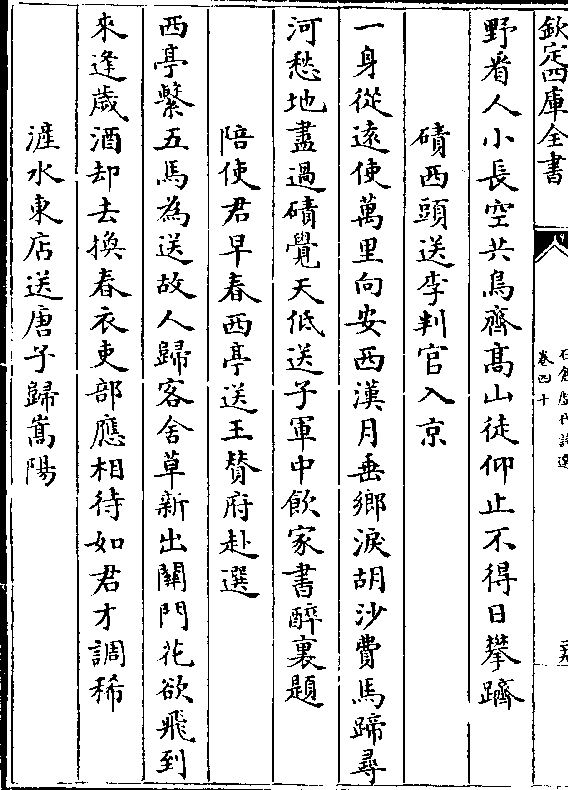 欽定四庫全書
石倉歷代詩選
卷四十
野看人小長空共鳥齊高山徒仰止不得日攀躋
磧西頭送李判官入京
一身從遠使萬里向安西漢月垂鄉淚胡沙費馬蹄尋
河愁地盡過磧覺天低送子軍中飲家書醉裏題
陪使君早春西亭送王賛府赴選
西亭繫五馬為送故人歸客舍草新出關門花欲飛到
來逢歲酒却去換春衣吏部應相待如君才調稀
滻水東店送唐子歸嵩陽